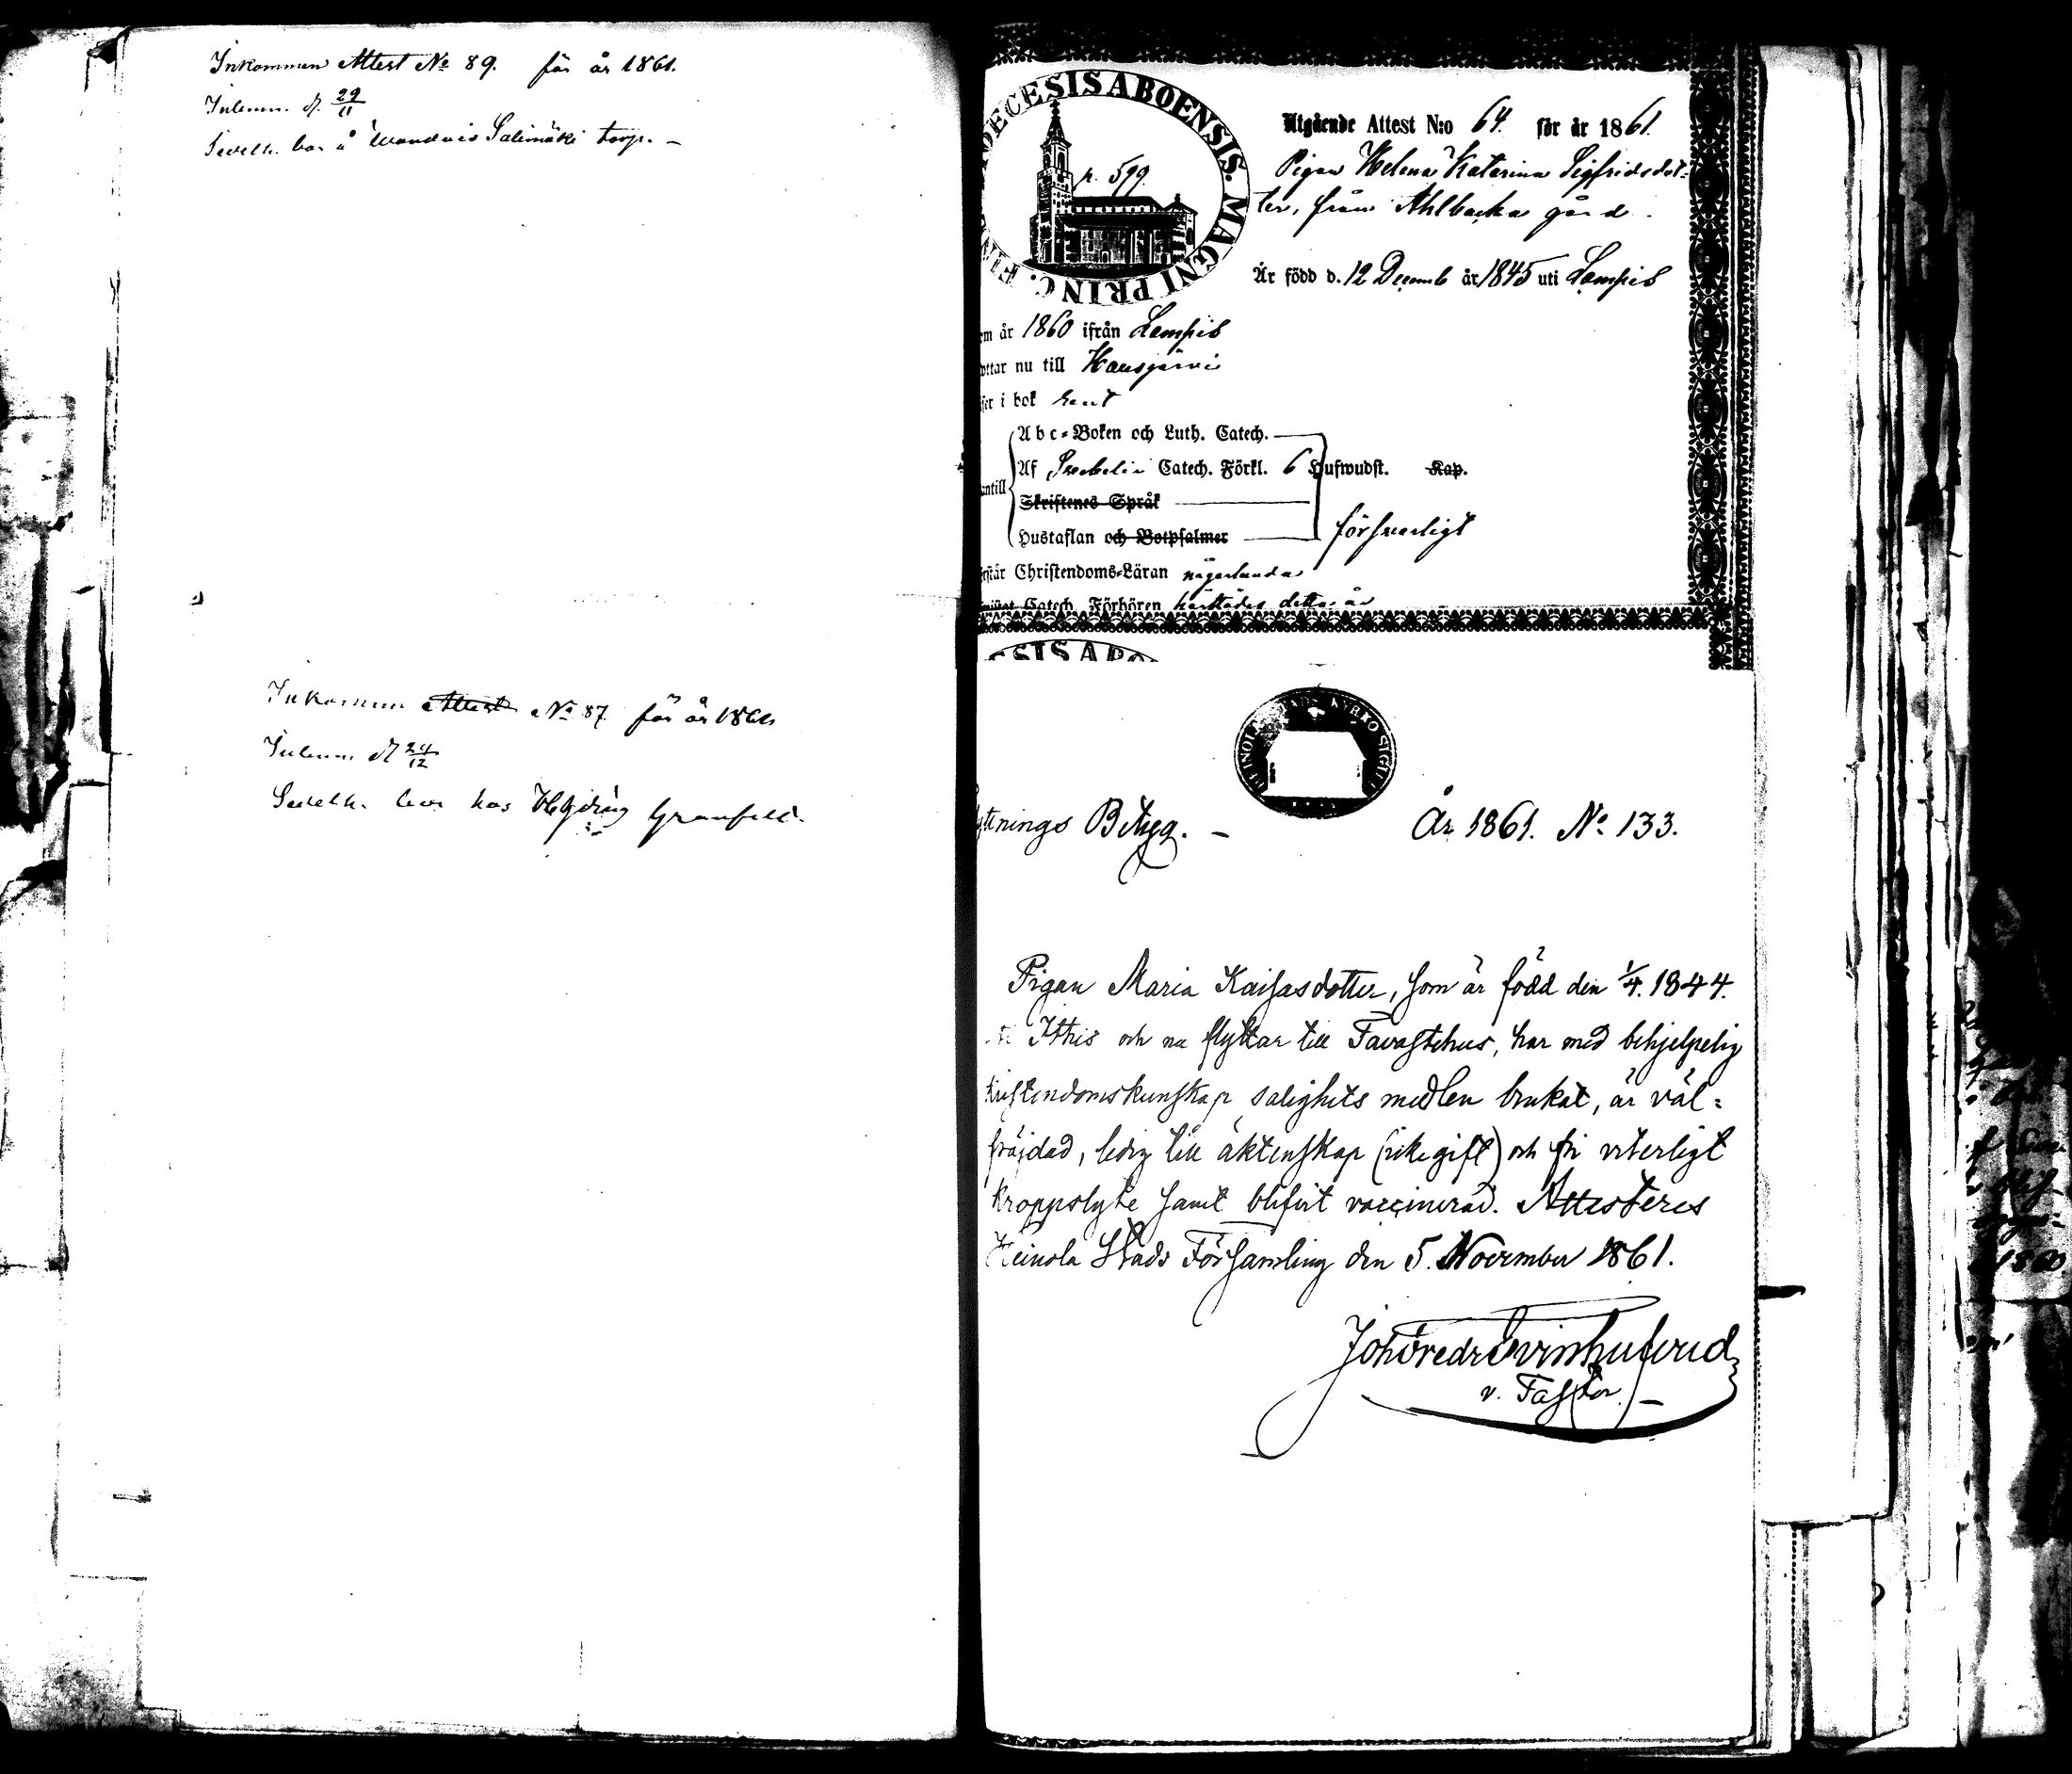 Inkommen Attest No 89. för år 1861.
Inlemn. d. 29/11
bor å Salimäki torp. –
Inkommen Attest No 87 för år 1861
Inlemn. d 24/12
hos Granfelt.
DIOECESIS ABOENSIS. MAGNI PRINC. FIN
p. 599.
Utgående Attest N:o 64. för år 1861.
Pigan Helena Katarina Sigfridsdot=
ter, från Ahlbacka gård.
Är född d. 12 Decemb år 1845 uti Lampis
em år 1860 ifrån Lampis
ttar nu till Hausjärvi
ser i bok rent
Abc=Boken och Luth. Catech.
antill
Af Svebelii Catech. Förkl. 6 Hufwudst. Kap.
Skriftenes Språk
Hustaflan och Botpsalmer försvarligt
rstår Christendoms=Läran någorlunda
Catech. Förhören härstädes detta år
ESIS ABO
HEINOLA STADS KYRKO SIGILL
ttnings Betyg. – År 1861. No 133.
Pigan Maria Kaisasdotter, som är född den 1/4. 1844.
i Ithis och nu flyttar till Tavastehus, har med behjelpelig
kristendomskunskap salighets medlen brukat, är väl=
fräjdad, ledig till äktenskap (icke gift) och fri viterligt
kroppslyte samt blifvit vaccinerad. Attesteras
Heinola Stads Församling den 5. November 1861.
Joh Fredr Svinhufvud
v. Pastor. –